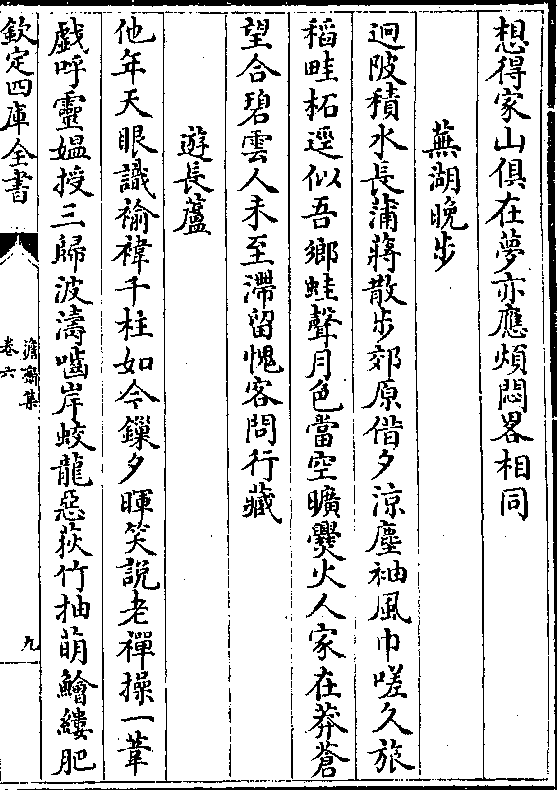 想得家山俱在夢亦應煩悶畧相同
蕪湖晚步
迴陂積水長蒲蔣散步郊原借夕涼塵袖風巾嗟久旅
稻畦柘逕似吾鄉蛙聲月色當空曠爨火人家在莽蒼
望合碧雲人未至滯留愧客問行藏
遊長蘆
他年天眼識褕褘千柱如今鏁夕暉笑說老禪操一葦
戲呼靈媪授三歸波濤嚙岸蛟龍惡荻竹抽萌鱠縷肥
欽定四庫全書
澹齋集
卷六
九